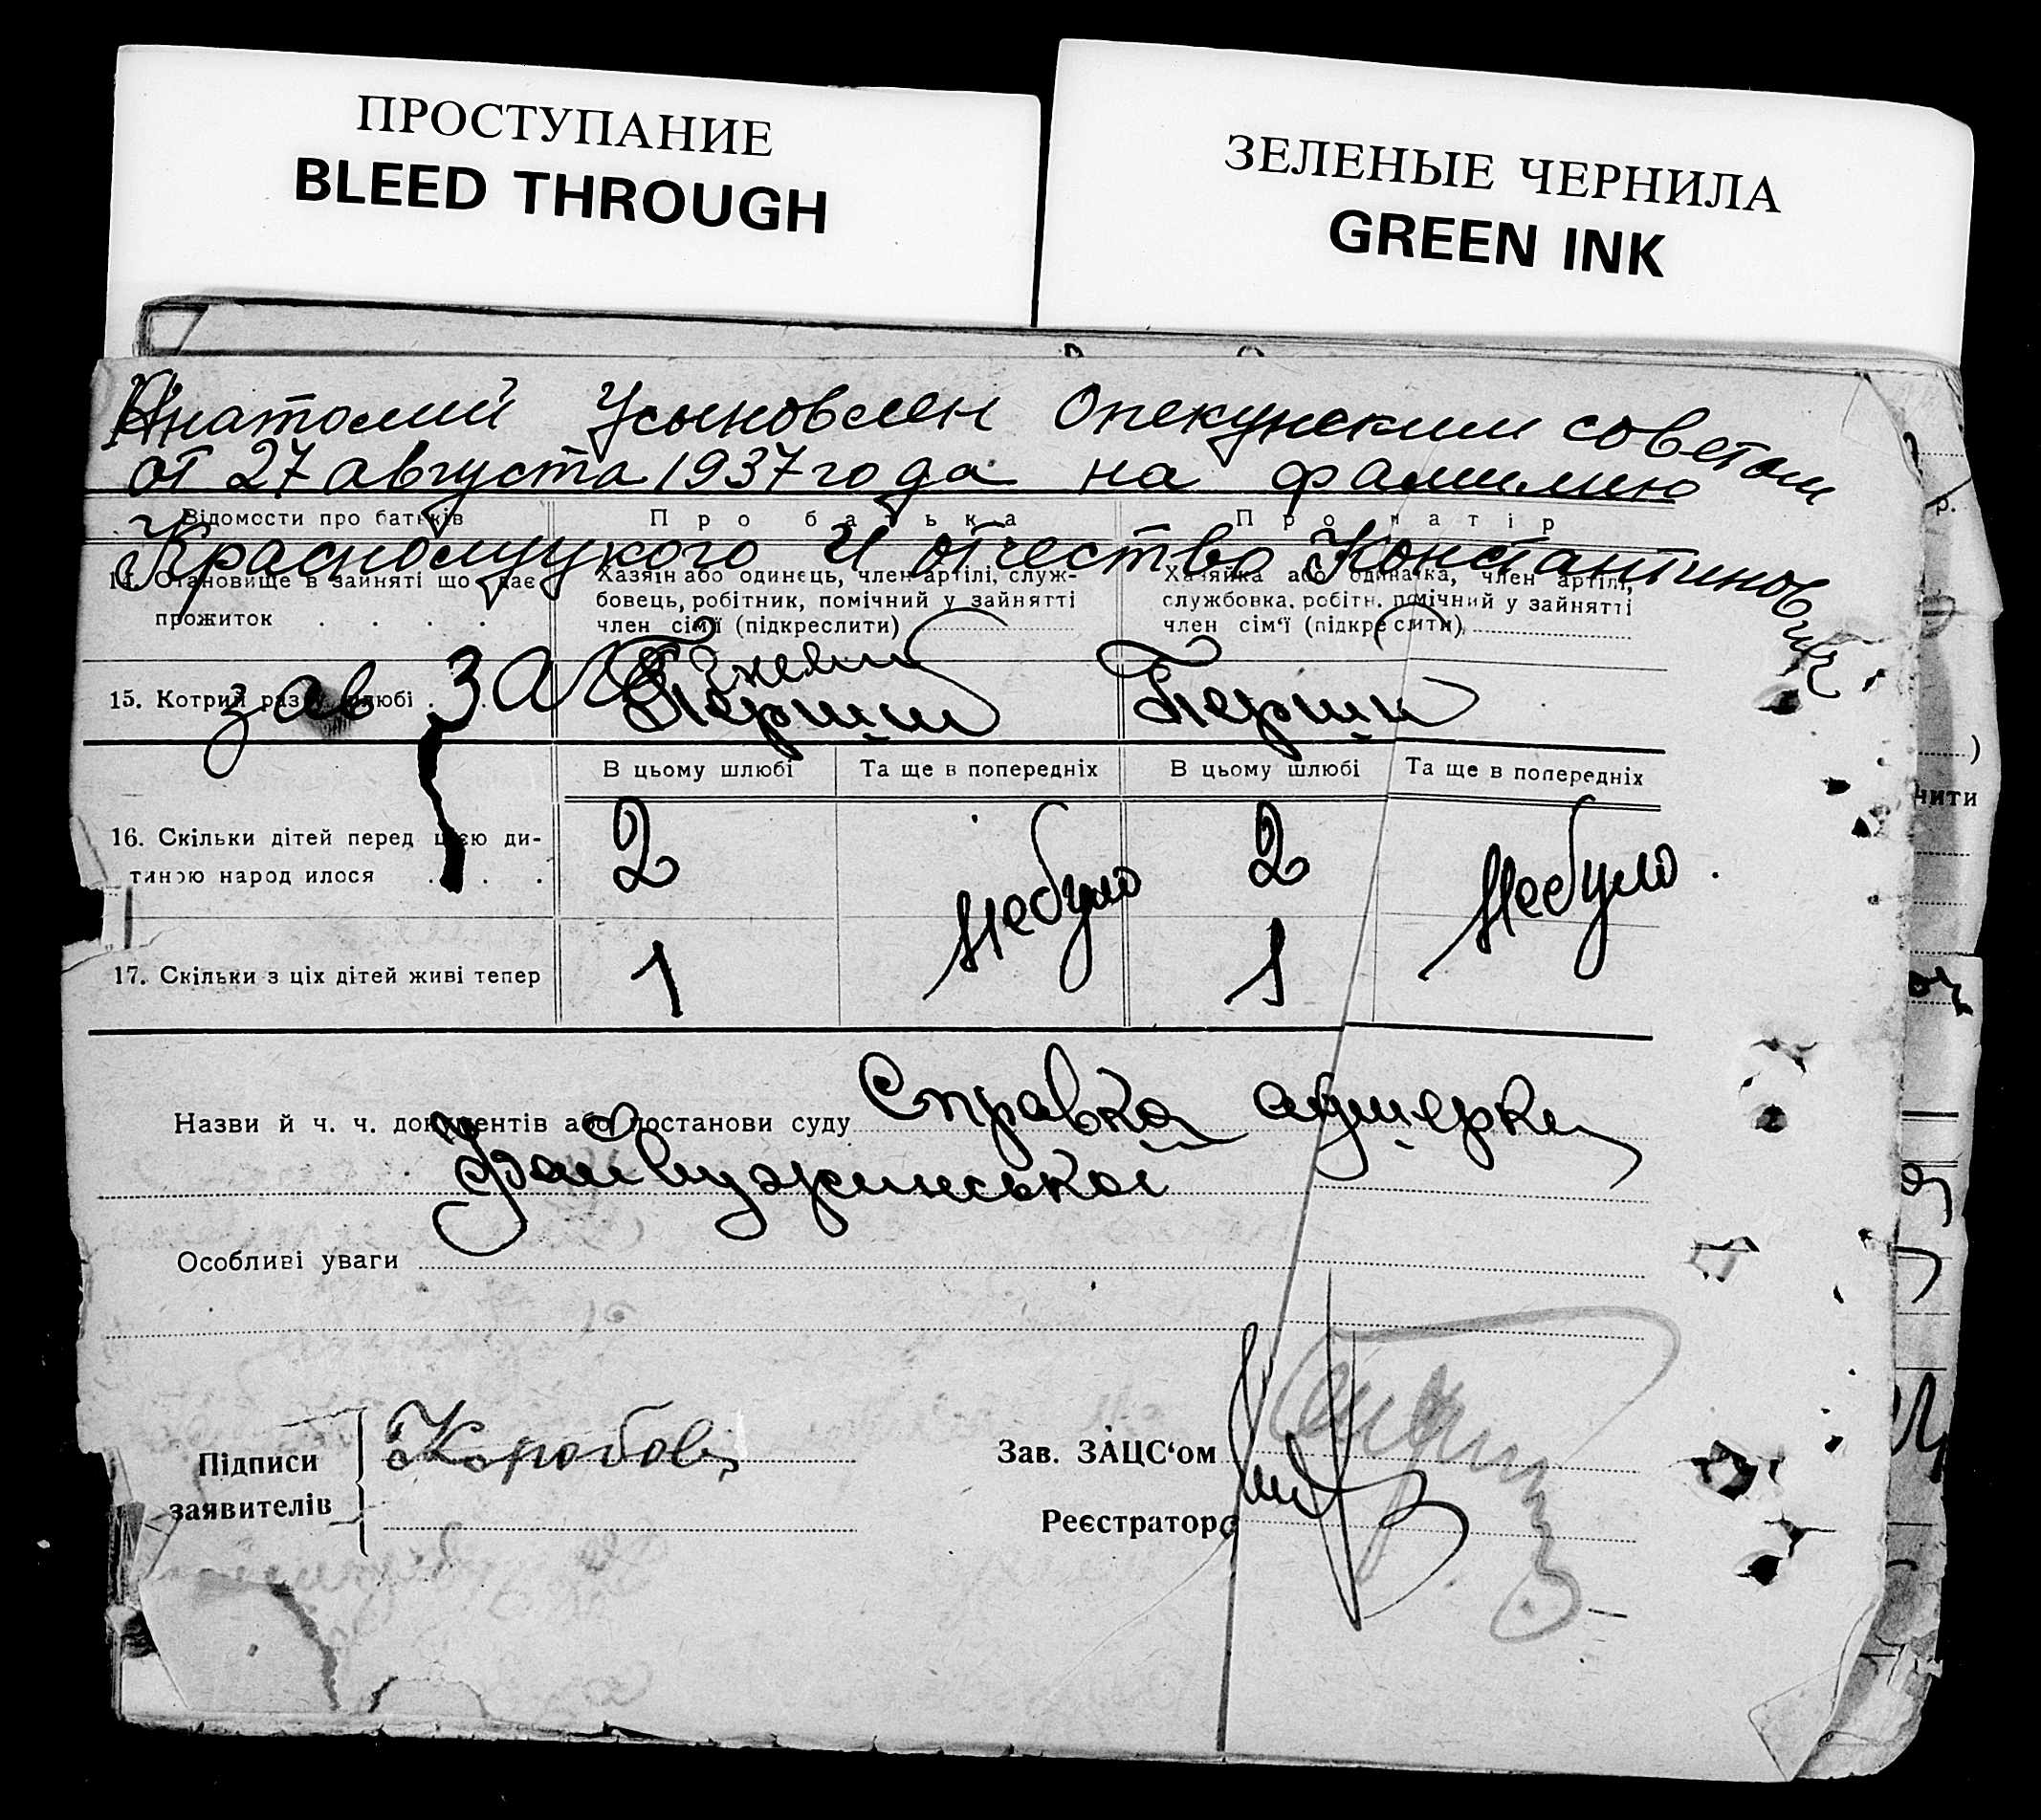 ПРОСТУПАНИЕ
BLEED THROUGH
ЗЕЛЕНЫЕ ЧЕРНИЛА
GREEN INK
Анатолий Усыновлен Опекунским советом
от 27 августа 1937 года на фамилию
Відомости про батьків
Про батька
Про матір
Краснолуцкого и отчество Константинович
14. Становище в зайняті що дає прожиток . . . .
Хазяїн або одинець, член артілі, служ-
бовець, робітник, помічний у зайнятті
член сім'ї (підкреслити)
Хазяйка або одиначка, член артілі,
службовка, робітн. помічний у зайнятті
член сім'ї (підкреслити)
зав ЗАГС
15. Котрий раз у шлюбі . .
Перший
Перший
В цьому шлюбі
Та ще в попередніх
В цьому шлюбі
Та ще в попередніх
16. Скільки дітей перед цією ди-
тиною народилося . . .
2
небуло
2
небуло
17. Скільки з ціх дітей живі тепер
1
1
Назви й ч. ч. документів або постанови суду Справка акушерки
Особливі уваги
Підписи
заявителів
Зав. ЗАЦС'ом
Реєстратор
р.
)
чити